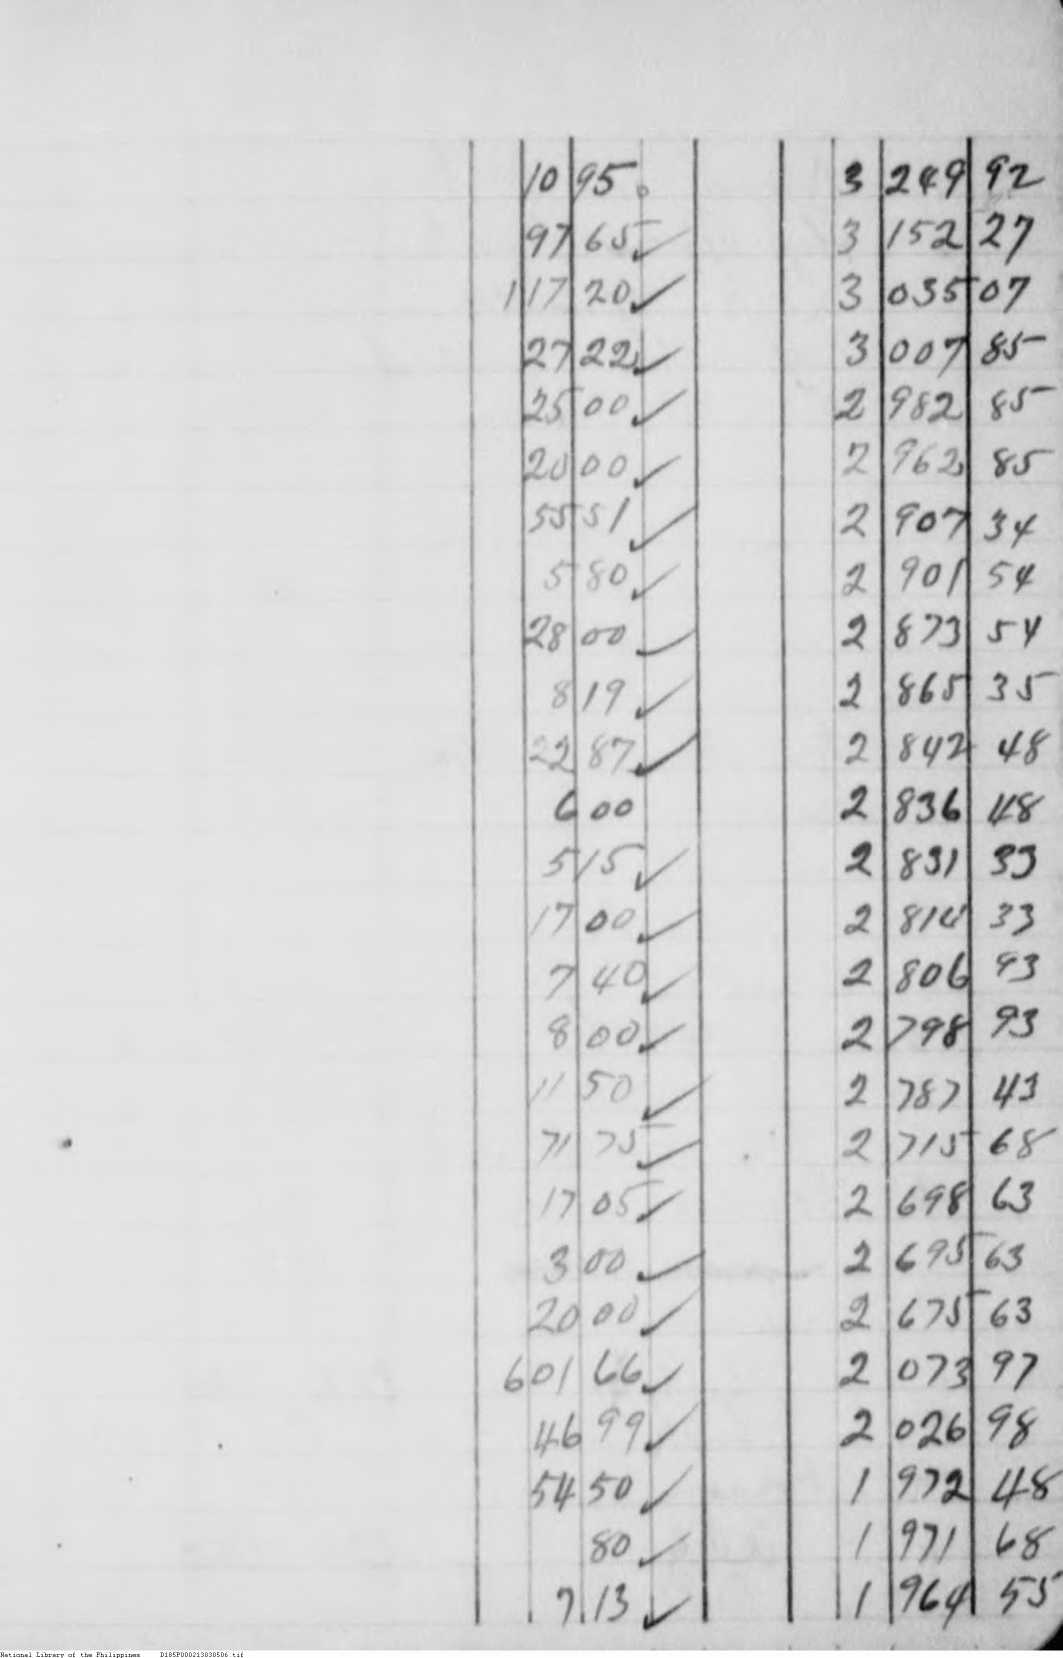 10 95 3 249 92
97 65 ✓ 3 152 27
117 20 ✓ 3 035 07
27 22 ✓ 3 007 85
25 00 ✓ 2 982 85
20 00 ✓ 2 962 85
55 51 ✓ 2 907 34
5 80 ✓ 2 901 54
28 00 ✓ 2 873 54
8 19 ✓ 2 865 35
22 87 ✓ 2 842 48
6 00 2 836 48
5 15 ✓ 2 831 33
17 00 ✓ 2 814 33
7 40 ✓ 2 806 93
8 00 ✓ 2 798 93
11 50 ✓ 2 787 43
71 75 ✓ 2 715 68
17 05 ✓ 2 698 63
3 00 ✓ 2 695 63
20 00 ✓ 2 675 63
601 66 ✓ 2 073 97
46 99 ✓ 2 026 98
54 50 ✓ 1 972 48
80 ✓ 1 971 68
7.13 ✓ 1 964 55
National Library of the Philippines D185P000213038506.tif